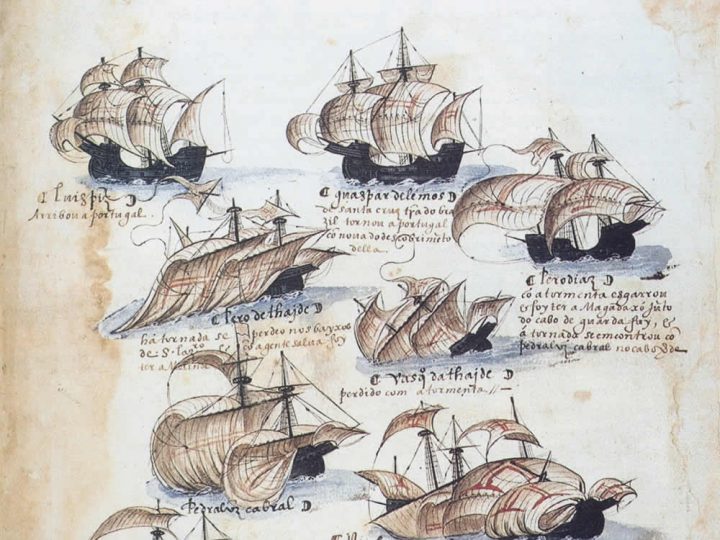 luis piz
Arribou a portugal.
guaspar de lemos
de santa cruz trá do bra
zil tornou a portugal
cō nova do descobrimēto
della.
Pero diaz
cō a tormenta esgarrou
e foy ter a Magadaxo juto
do cabo de guardafuy, e
á tornada se emcontrou cō
pedralvz cabral no cabo
Pero de thaide
há tornada se perdeo nos bayxos
de S. lazro cō a gente salva foy
ter a Melinde
vasq da thaide
perdido com a tormenta.
Pedralvz cabral